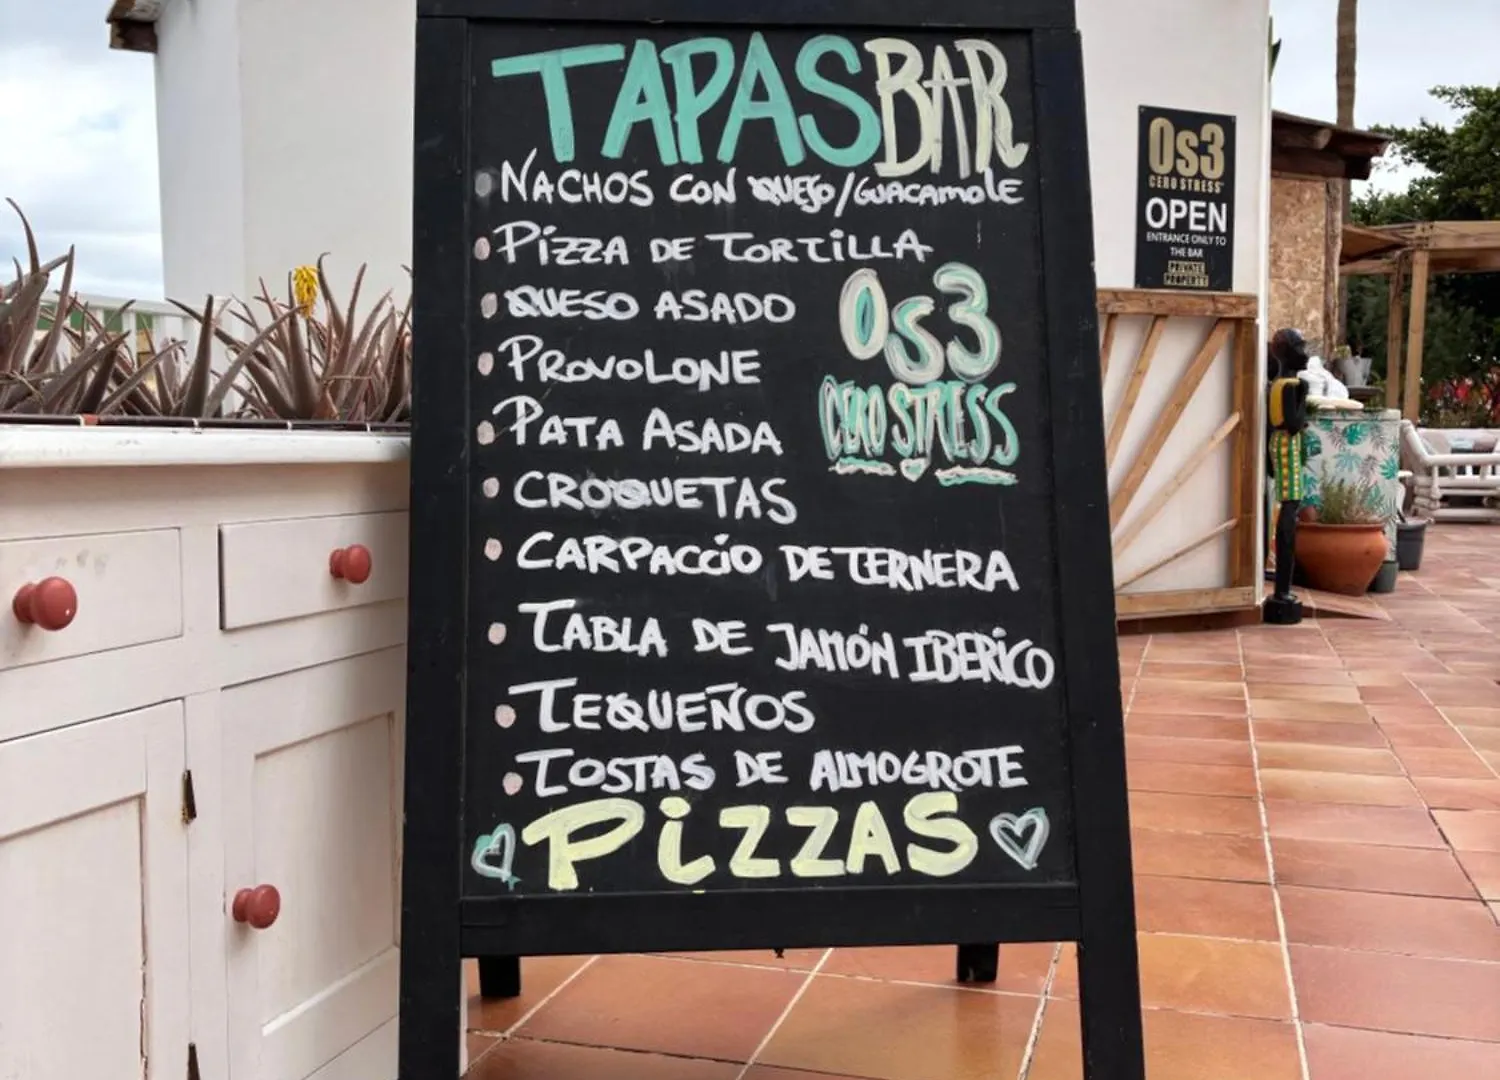 TAPAS BAR
NACHOS CON QUESO/GUACAMOLE
PIZZA DE TORTILLA
QUESO ASADO
PROVOLONE
PATA ASADA
CROQUETAS
CARPACCIO DE TERNERA
TABLA DE JAMÓN IBERICO
TEQUEÑOS
TOSTAS DE ALMOGROTE
PIZZAS
Os3
CERO STRESS
Os3
CERO STRESS
OPEN
ENTRANCE ONLY TO
THE BAR
PRIVATE
PROPERTY